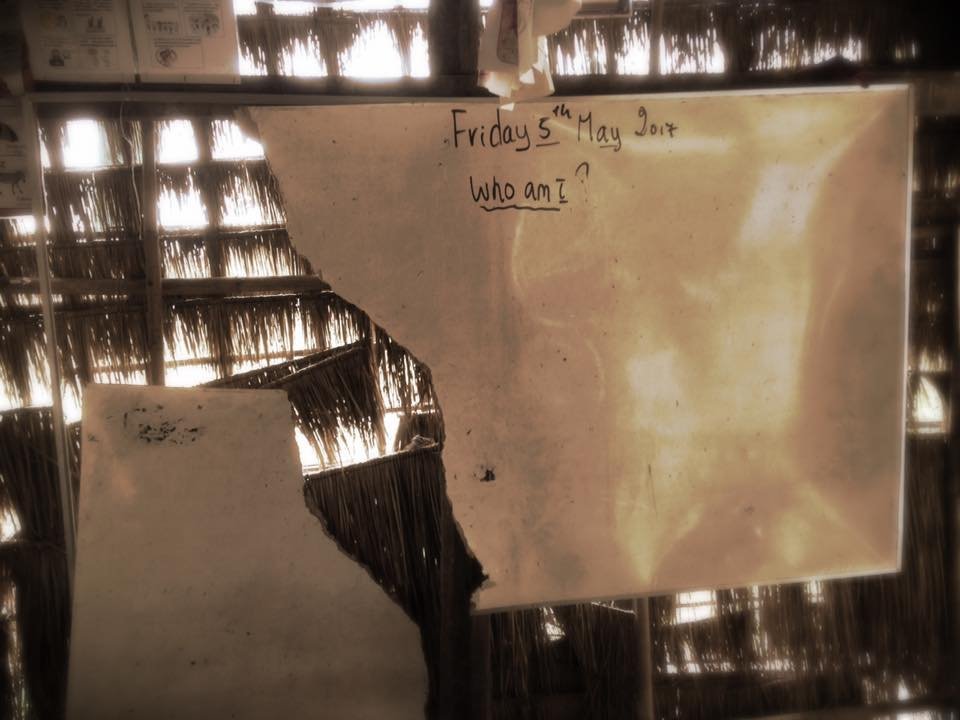 Friday 5th May 2017
Who am I?